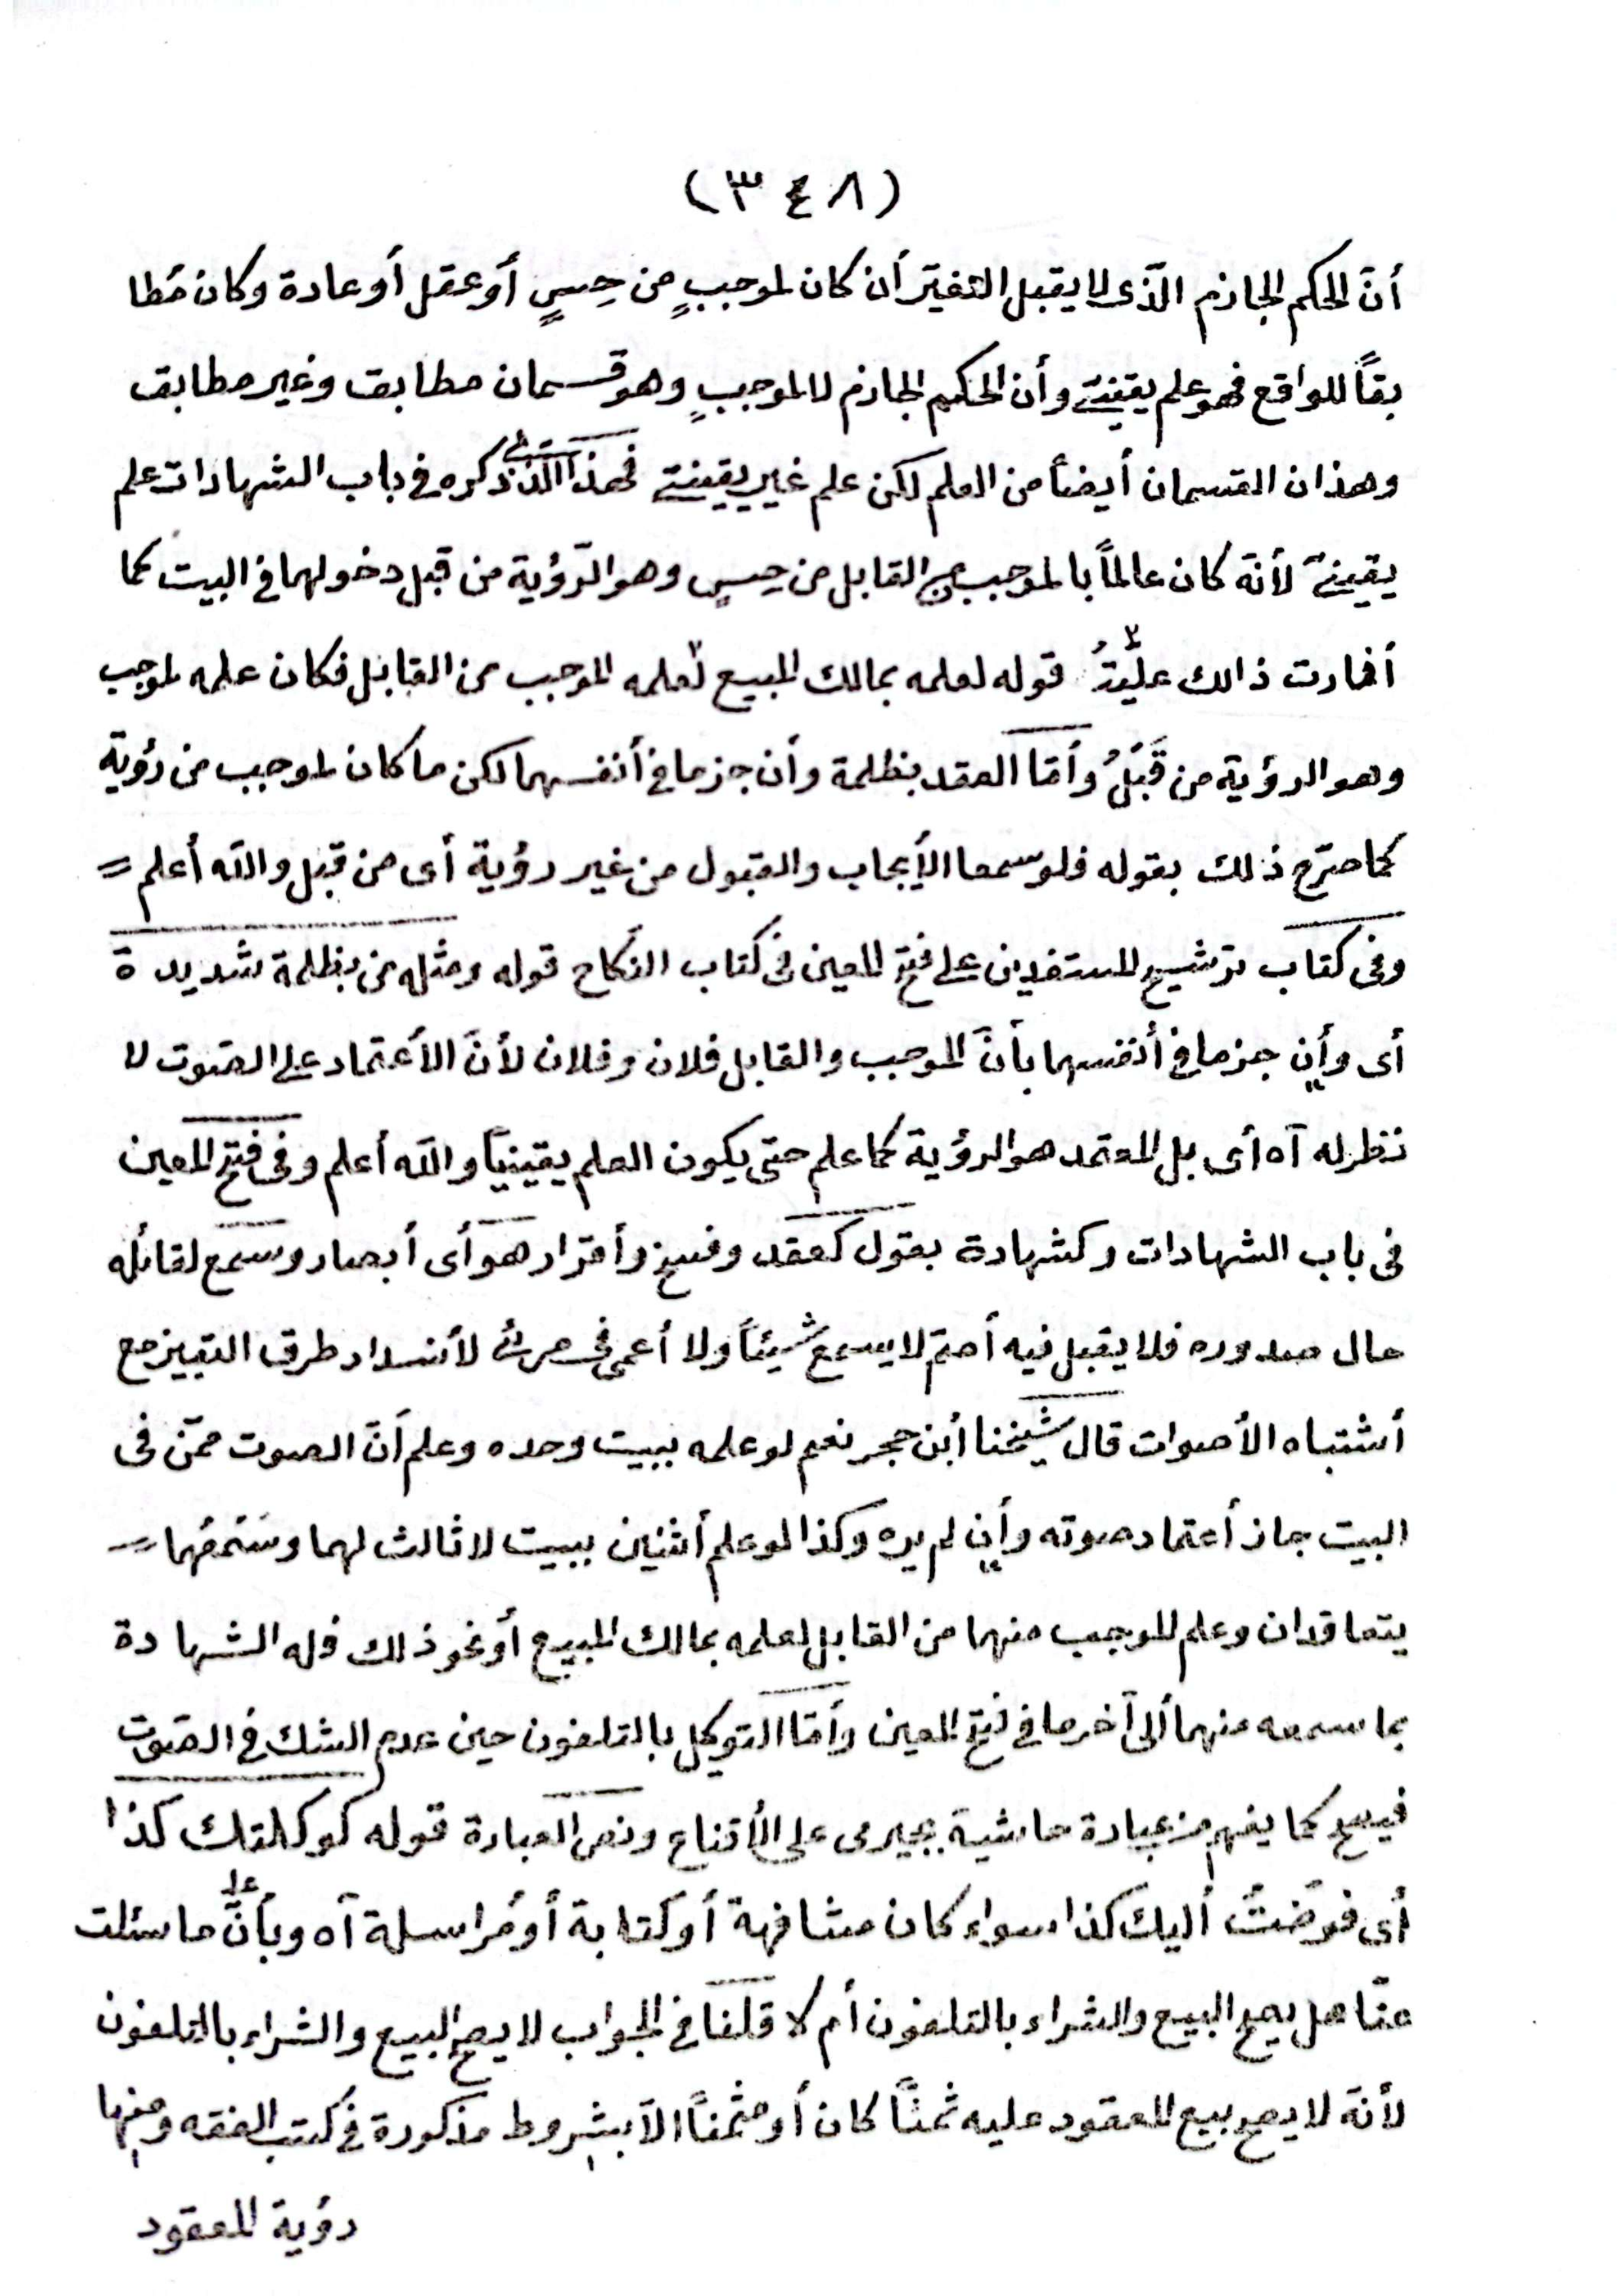 (٣٤٨)
أنّ الحكم الجازم الّذى لا يقبل التغيّر أن كان لموجبٍ من حِسٍّ أو عقل أو عادة وكان مُطا
بقاً للواقع فهو علم يقينىّ وأن الحكم الجازم لا لموجبٍ وهو قسمان مطابق وغير مطابق
وهذان القسمان أيضاً من العلم لكن علم غير يقينىّ فهذا الّذى ذكره فى باب الشهادات علم
يقينىّ لأنّه كان عالماً بالموجب من القابل من حِسٍ وهو الرّؤية من قبل دخولهما فى البيت كما
أفادت ذالك علّيّتُ قوله لعلمه بمالك المبيع لّعلمه الموجب من القابل فكان علمه لموجب
وهو الرؤية من قَبْلُ وأمّا العقد بظلمة وأن جزما فى أنفسهما لكن ما كان لموجب من رؤية
كما صرّح ذلك بقوله فلو سمعا الأيجاب والقبول من غير رؤية أى من قبل والله أعلم =
وفى كتاب ترشيح المستفدين على فتح المعين فى كتاب النّكاح قوله ومثله من بظلمة شديدة
أى وأِن جزما فى أنفسهما بأنّ الموجب والقابل فلان وفلان لأنّ الأعتماد على الصّوت لا
نظر له آه أى بل المعتمد هو الرؤية كما علم حتى يكون العلم يقينياً والله أعلم وفى فتح المعين
فى باب الشهادات وكشهادة بقول كعقد وفسخ وأقرار هو أى أبصار وسمع لقائله
حال صدوره فلا يقبل فيه أصمّ لا يسمع شيئاً ولا أعمى فى مرئىّ لأنسداد طرق التميز مع
أشتباه الأصوات قال شيخنا أبن حجر نعم لو علمه ببيت وحده وعلم أنّ الصوت ممّن فى
البيت جاز أعتماد صوته وأِن لم يره وكذا لو علم أثنين ببيت لا ثالث لهما وسَمِعَهما =
يتعاقدان وعلم الموجب منهما من القابل لعلمه بمالك المبيع أو نحو ذلك فله الشهادة
بما سمعه منهما ألى آخر ما فى فتح المعين وأمّا التوكيل بالتلفون حين عدم الشك فى الصّوت
فيصح كما يفهم من عبارة حاشية بجيرمى على الأقناع ونصّ العبارة قوله كوكلتك كذا
أى فوّضتُ أليك كذا سواء كان مشافهة أو كتابة أو مُراسلة آه وبأنّ على ما سئلت
عنّا هل يصح البيع والشراء بالتلفون أم لا قلنا فى الجواب لا يصح البيع والشراء بالتلفون
لأنّه لا يصح بيع المعقود عليه ثمنًا كان أو مثمنًا الاّ بشروط مذكورة فى كتب الفقه ومنها
رؤية المعقود